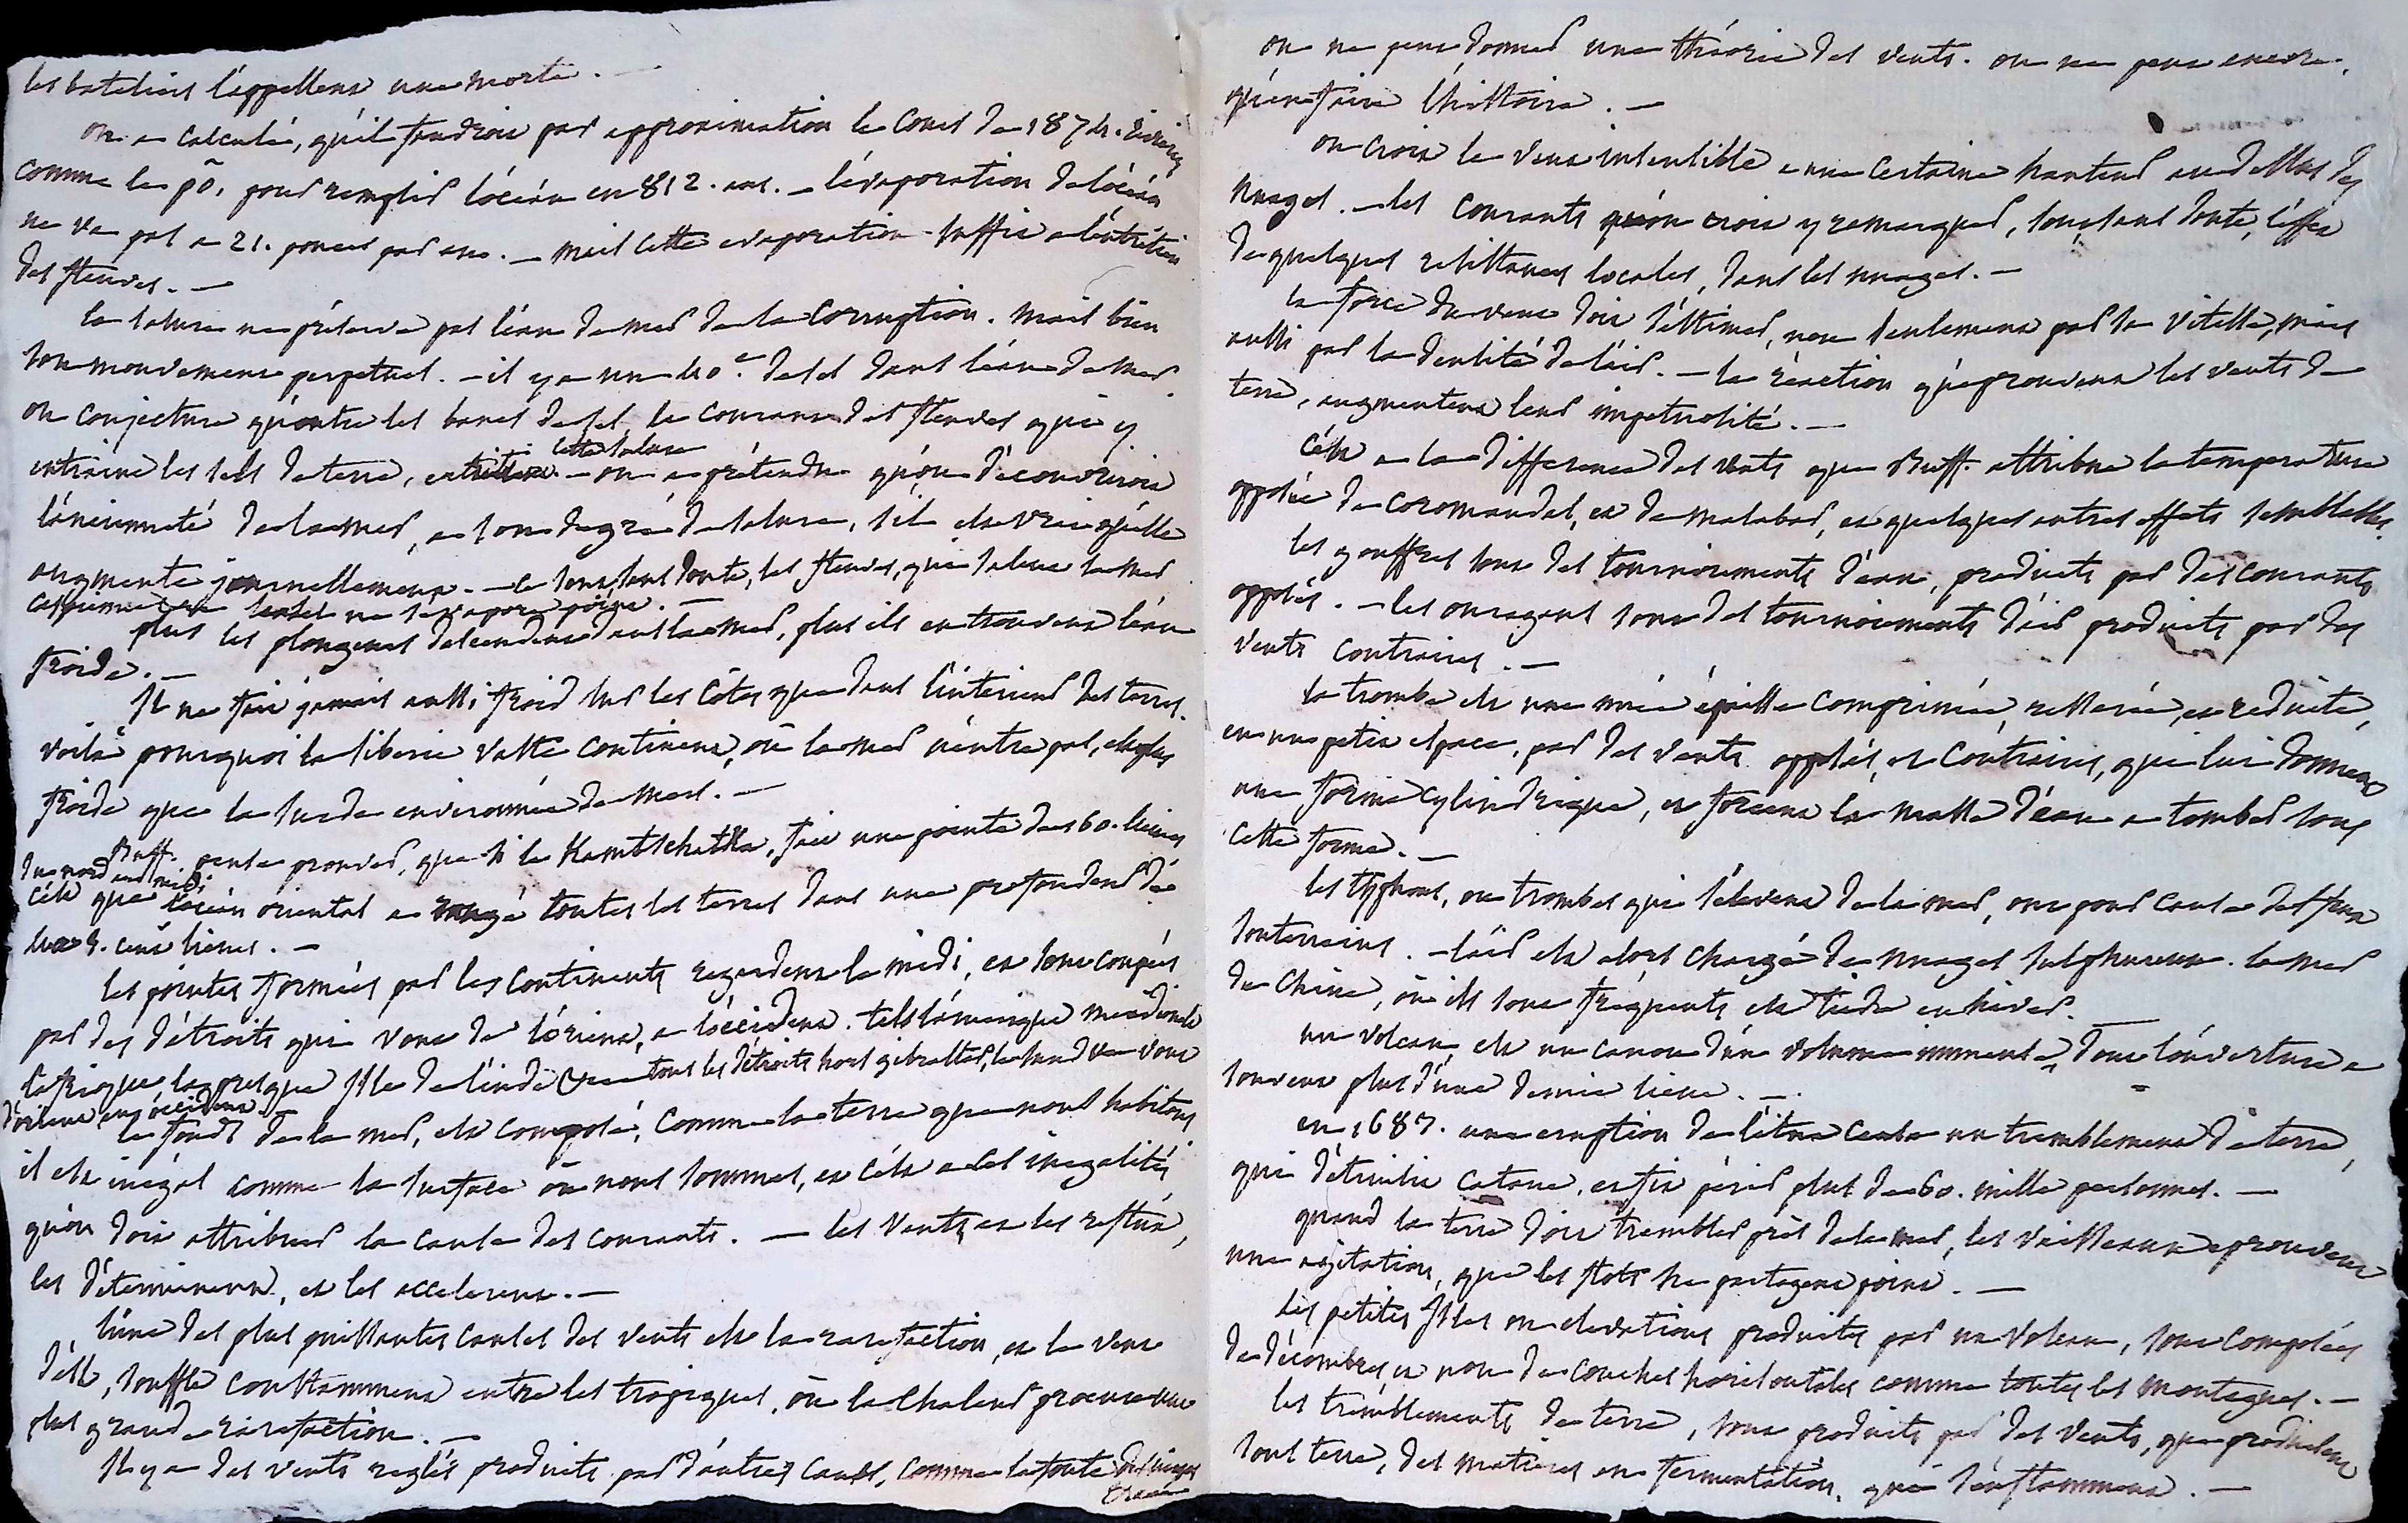 les bateliers l'appellent une morte. —
on a calculé, qu'il faudroit par approximation le Cours de 1874. rivieres
comme le pô, pour remplir l'océan en 812. ans. — l'évaporation de l'océan
ne va pas a 21. pouces par an. — mais cette evaporation suffit a l'entretien
des fleuves. —
la salure ne préserve pas l'eau de mer de la corruption. mais bien
son mouvement perpetuel. — il y a un 40.e de sel dans l'eau de mer.
on conjecture qu'outre les bancs de sel, le courant des fleuves qui y
entraine les sels de terre, entretient cette salure — on a prétendu qu'on découvriroit
l'ancienneté de la mer, a son degré de salure, s'il est vrai qu'elle
augmente journellement. — ce sont, sans doute, les fleuves, qui salent la mer
caspienne et le sel ne s'evapore point. —
plus les plongeurs descendent dans la mer, plus ils en trouvent l'eau
froide. —
Il ne fait jamais aussi froid sur les côtes que dans l'intérieur des terres.
voilà pourquoi la siberie vaste continent, où la mer n'entre pas, est plus
froide que la suede environnée de mers. —
Buff. pense prouver, que si le Kamtschatka, fait une pointe de 160. lieues
du nord au midi
c'est que l'océan oriental a rongé toutes les terres dans une profondeur de
4. cens lieues. —
les pointes formées par les continents regardent le midi, et sont coupées
par des détroits qui vont de l'orient, a l'occident. tels l'amerique méridionale
l'afrique la presque Isle de l'inde &c. tous les détroits hors gibraltar, le sund vont
d'orient en occident.
le fonds de la mer, est composé, comme la terre que nous habitons
il est inégal comme la surface où nous sommes, et c'est a ces inegalités
qu'on doit attribuer la cause des courants. — les vents et les reflux,
les déterminent, et les accelerent. —
l'une des plus puissantes causes des vents est la rarefaction, et le vent
d'est, souffle constamment entre les tropiques, où la chaleur procure une
plus grande rarefaction. —
Il y a des vents reglés produits par d'autres causes, comme la fonte des neiges
on ne peut, donner une théorie des vents. on ne peut encore,
qu'en faire l'histoire. —
on croit le vent insensible a une certaine hauteur au dessus des
nuages. — les courants qu'on croit y remarquer, sont, sans doute, l'effet
de quelques resistances locales, dans les nuages. —
la force du vent doit s'estimer, non seulement par sa vitesse, mais
aussi par la densité de l'air. — la réaction qu'eprouvent les vents de
terre, augmentent leur impetuosité. —
C'est a la difference des vents que Buff. attribue la temperature
opposée de coromandel, et de malabar, et quelques autres effets semblables.
les gouffres sont des tournoiements d'eau, produits par des courants
opposés. — les ouragans sont des tournoiements d'air produits par des
vents contraires. —
la trombe est une nuée épaisse comprimée, resserrée, et reduite,
en un petit espace, par des vents opposés, et contraires, qui lui donnent
une forme cylindrique, et forcent la masse d'eau a tomber sous
cette forme. —
les typhons, ou trombes qui s'elevent de la mer, ont pour cause des feux
souterrains. — l'air est alors chargé de nuages sulphureux. la mer
de Chine, où ils sont fréquents est tiede en hiver.
un volcan, est un canon d'un volume immense, dont l'ouverture a
souvent plus d'une demie lieue. —
en, 1687. une eruption de l'etna causa un tremblement de terre,
qui détruisit catane, et fit périr plus de 60. mille personnes. —
quand la terre doit trembler près de la mer, les vaisseaux eprouvent
une agitation, que les flots ne partagent point. —
Les petites Isles ou elevations produites par un volcan, sont composées
de décombres et non de couches horisontales comme toutes les montagnes. —
les tremblements de terre, sont produits par des vents, que produisent
sous terre, des matieres en fermentation, qui s'enflamment. —